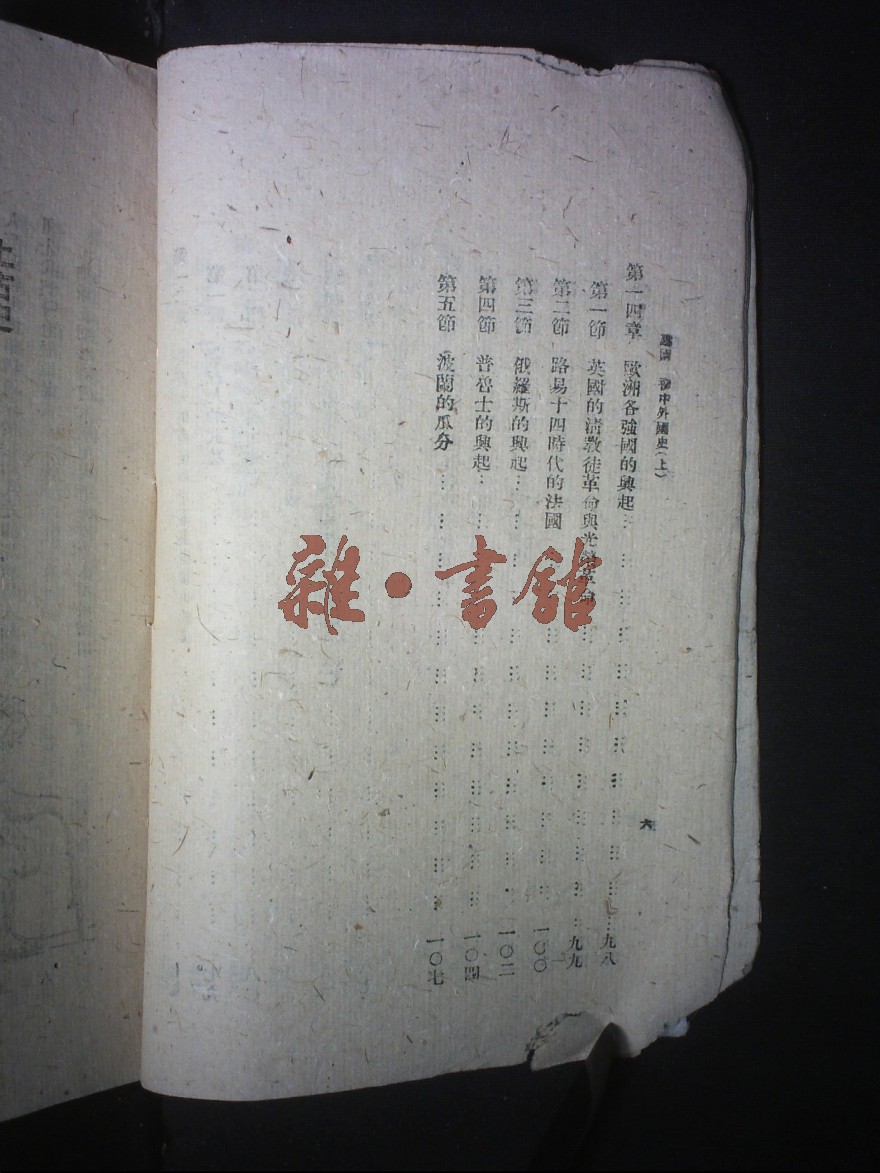 初中外國史(上)
六
第一四章 歐洲各強國的興起……九八
第一節 英國的清教徒革命與光榮革命……九九
第二節 路易十四時代的法國……一〇〇
第三節 俄羅斯的興起……一〇二
第四節 普魯士的興起……一〇四
第五節 波蘭的瓜分……一〇七
雜·書館